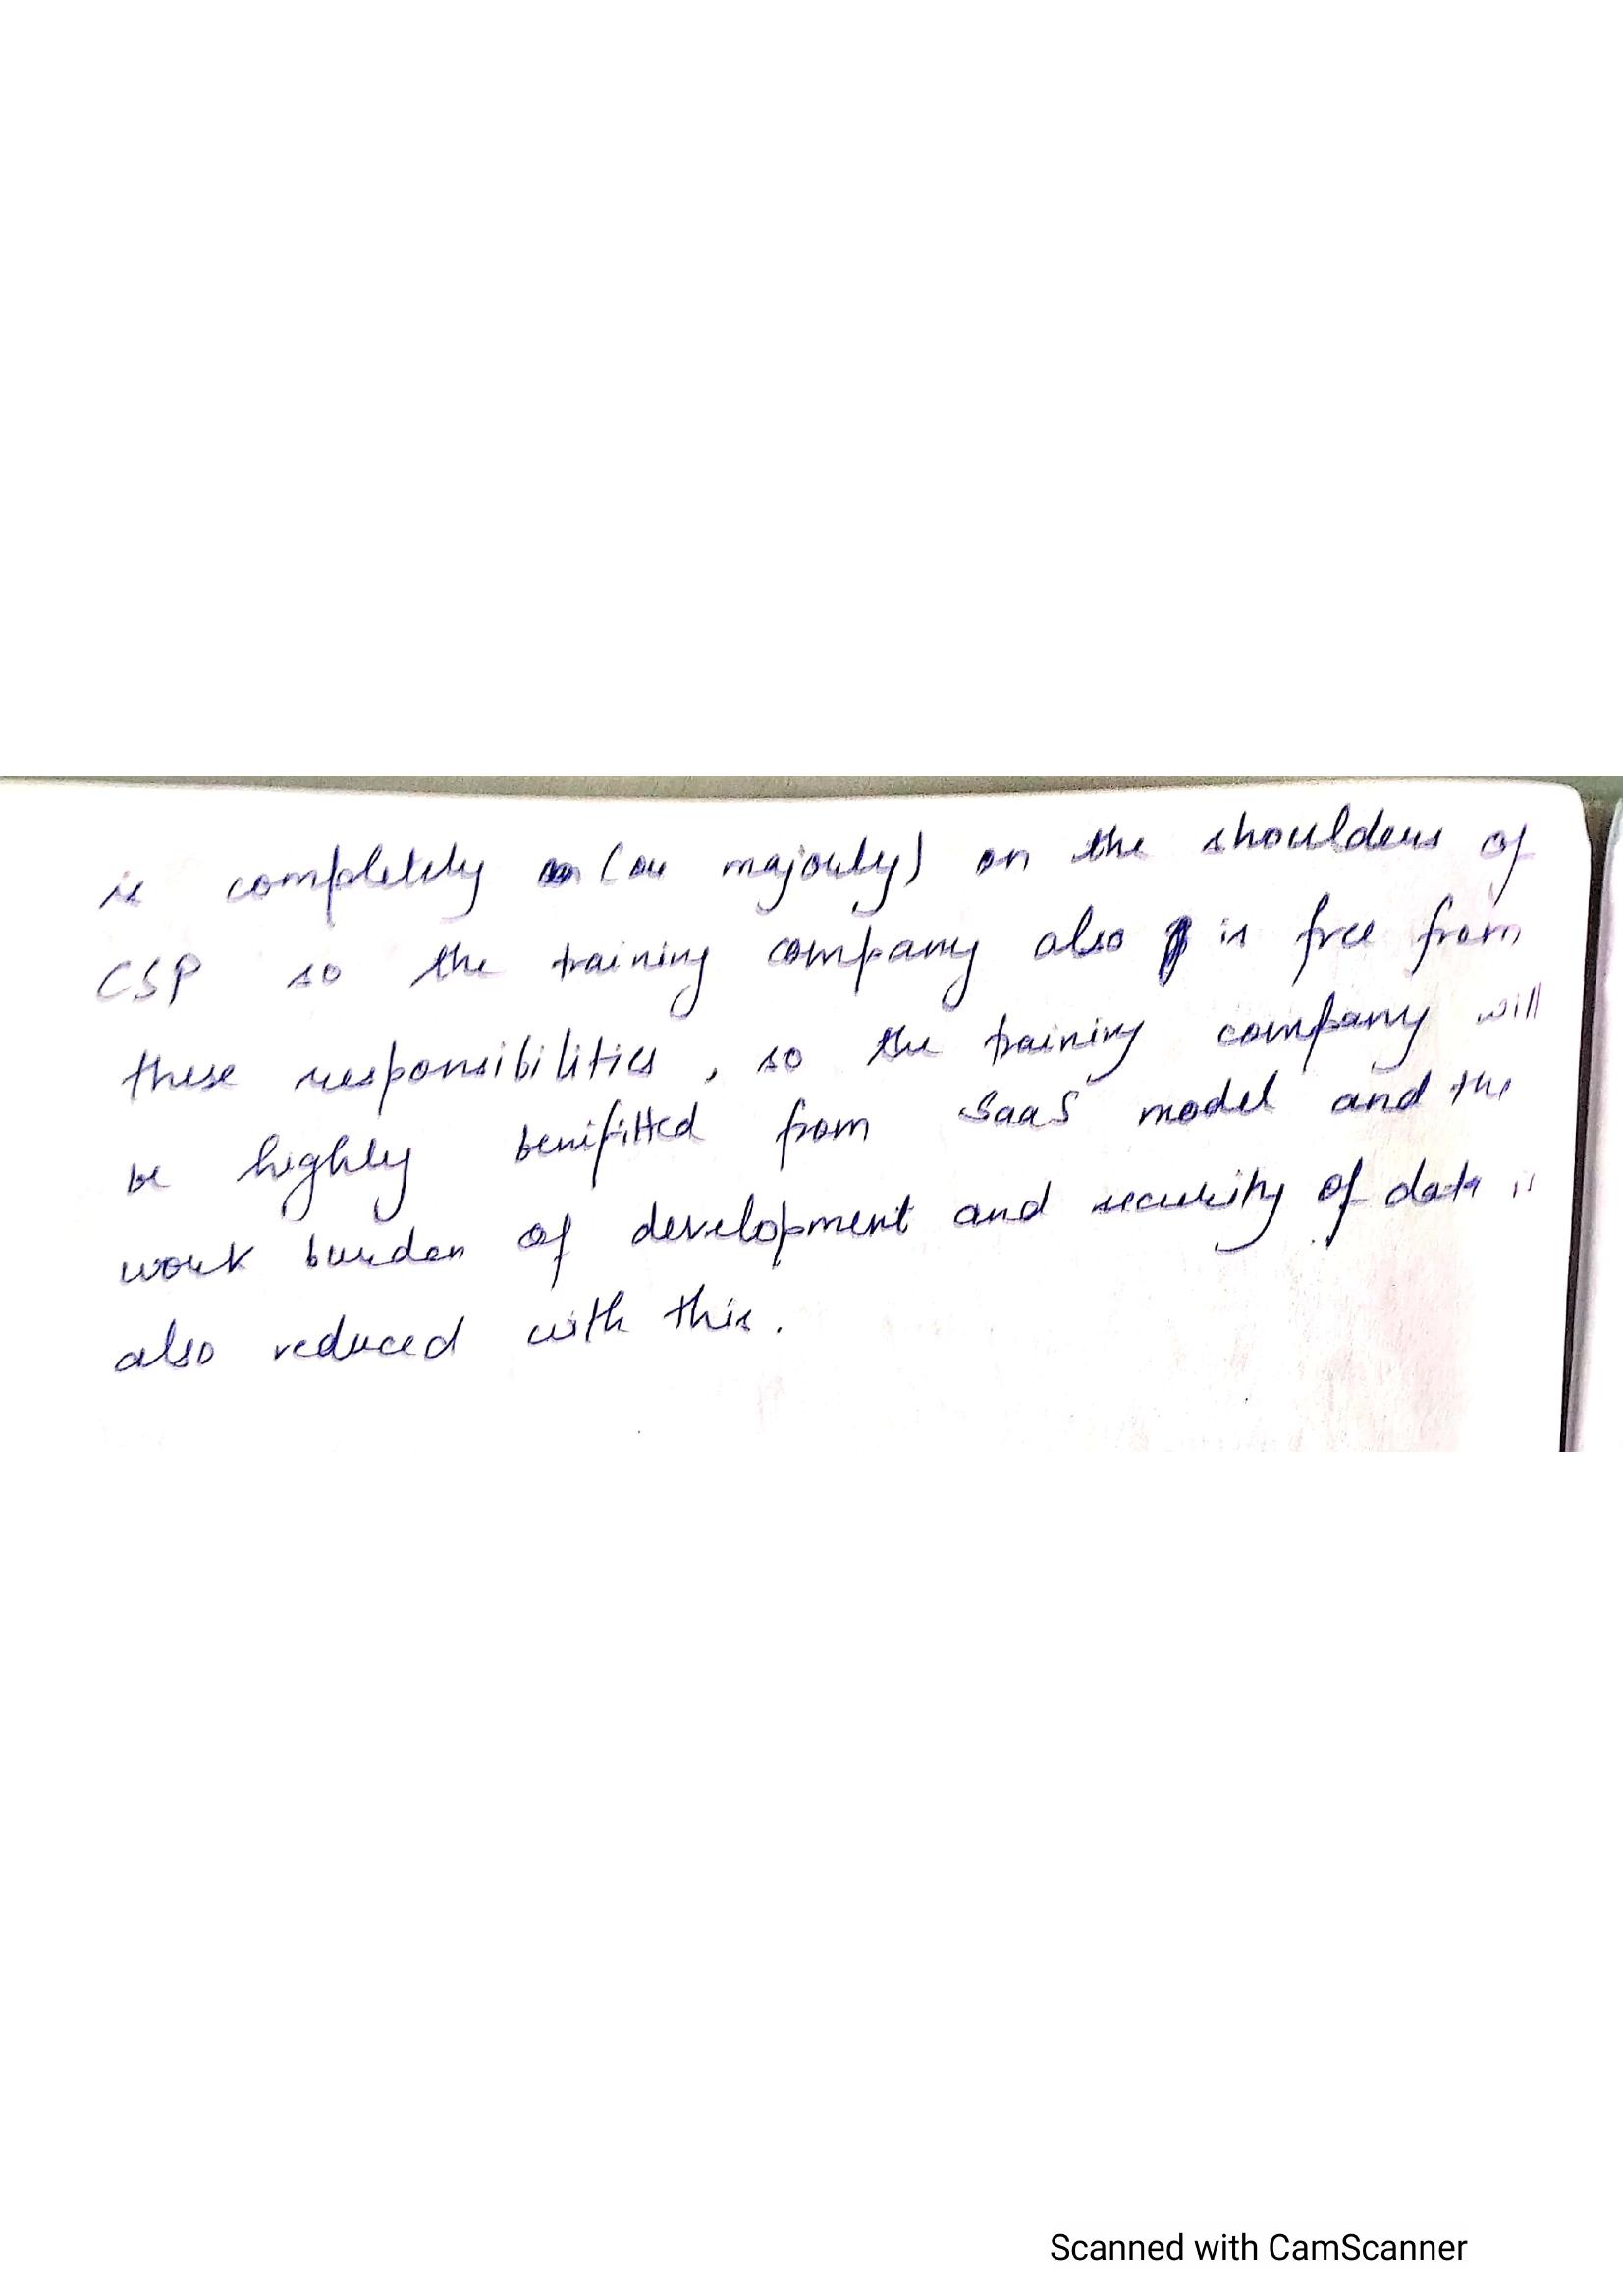 is completely (or majorly) on the shoulders of
CSP so the training company also is free from
these responsibilities, so the training company will
be highly benifitted from SaaS model and the
work burden of development and security of data is
also reduced with this.
Scanned with CamScanner